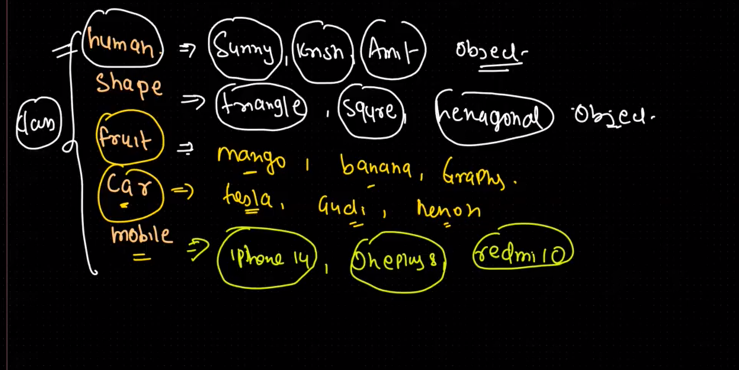 human => Sunny, Krish, Amit Object
Shape => triangle, Squre, hexagonal Object.
class
fruit => mango, banana, Graphs.
Car => tesla, audi,
mobile => iphone 14, Oneplus 8, redmi 10